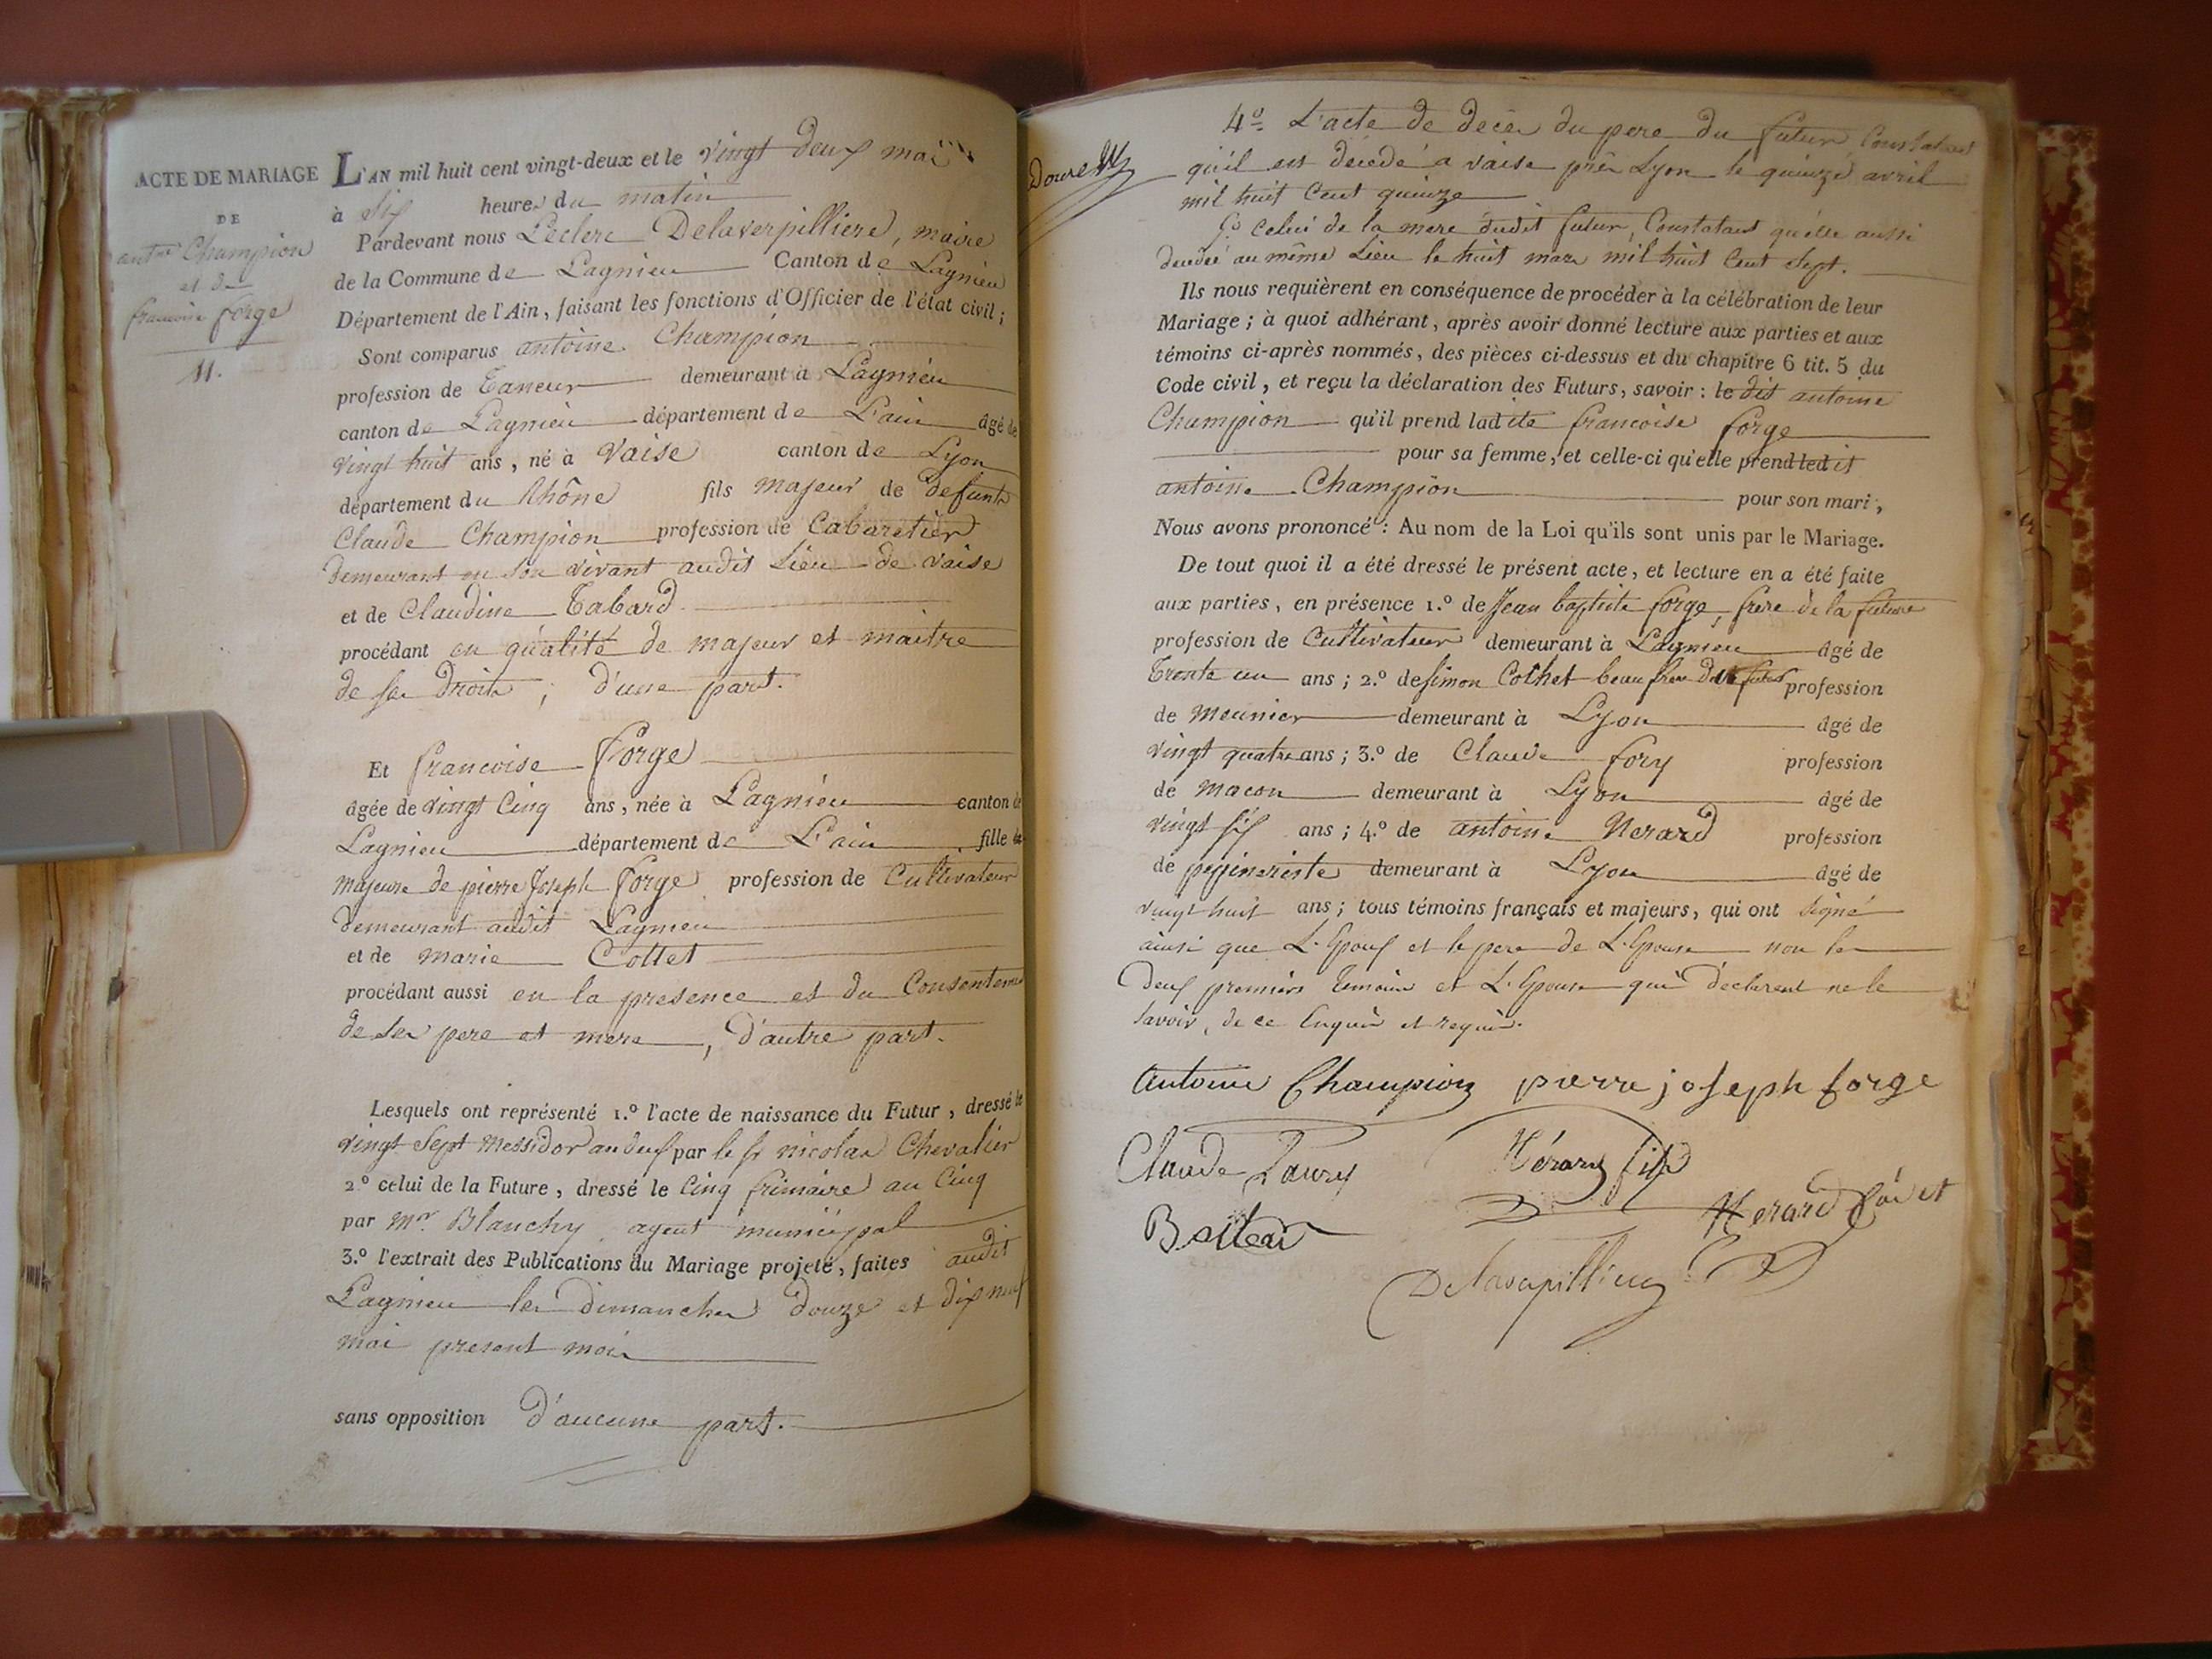 ACTE DE MARIAGE
DE
antne Champion
et de
francoise forge
11.
L'AN mil huit cent vingt-deux et le vingt deux mai
à six heures du matin
Pardevant nous Leclerc Delaverpilliere, maire
de la Commune de Lagnieu Canton de Lagnieu
Département de l'Ain, faisant les fonctions d'Officier de l'état civil;
Sont comparus antoine Champion
profession de Taneur demeurant à Lagnieu
canton de Lagnieu département de L'ain âgé de
vingt huit ans, né à Vaise canton de Lyon
département du Rhône fils majeur de defunts
Claude Champion profession de Cabaretier
demeurant en son vivant audit Lieu de vaise
et de Claudine Tabard
procédant en qualité de majeur et maitre
de ses Droits, d'une part.
Et francoise Forge
âgée de vingt Cinq ans, née à Lagnieu canton de
Lagnieu département de L'ain fille
majeure de pierre Joseph forge profession de Cultivateur
demeurant audit Lagnieu
et de marie Collet
procédant aussi en la presence et du Consenteme
de ses pere et mere, D'autre part.
Lesquels ont représenté 1.º l'acte de naissance du Futur, dressé le
vingt Sept messidor an deux par le sr nicolas Chevalier
2.º celui de la Future, dressé le Cinq frimaire an Cinq
par mr. Blanchy agent municipal
3.º l'extrait des Publications du Mariage projeté, faites audit
Lagnieu les dimanches douze et dix neuf
mai present mois
sans opposition D'aucune part.
4º L'acte de décès du pere du futur Constatant
qu'il est décédé a vaise près Lyon le quinze avril
mil huit Cent quinze
5º Celui de la mere dudit futur, Constatant qu'elle aussi
decedée au même Lieu le huit mars mil huit Cent Sept.
Ils nous requièrent en conséquence de procéder à la célébration de leur
Mariage; à quoi adhérant, après avoir donné lecture aux parties et aux
témoins ci-après nommés, des pièces ci-dessus et du chapitre 6 tit. 5 du
Code civil, et reçu la déclaration des Futurs, savoir: le dit antoine
Champion qu'il prend ladite francoise forge
pour sa femme, et celle-ci qu'elle prend ledit
antoine Champion pour son mari,
Nous avons prononcé: Au nom de la Loi qu'ils sont unis par le Mariage.
De tout quoi il a été dressé le présent acte, et lecture en a été faite
aux parties, en présence 1.º de Jean baptiste forge, frere de la future
profession de Cultivateur demeurant à Lagnieu âgé de
Trente un ans; 2.º de simon Cothet beau frere futur profession
de meunier demeurant à Lyon âgé de
vingt quatre ans; 3.º de Claude fory profession
de macon demeurant à Lyon âgé de
vingt six ans; 4.º de antoine Nerard profession
de pepineriste demeurant à Lyon âgé de
vingt huit ans; tous témoins français et majeurs, qui ont signé
ainsi que L'Epoux et le pere de L'Epouse non les
deux premiers temoins et L'Epouse qui déclarent ne le
savoir, de ce Enquis et requis.
antoine Champion pierre joseph forge
Claude
Nérard fils
Nerard
Delaverpilliere